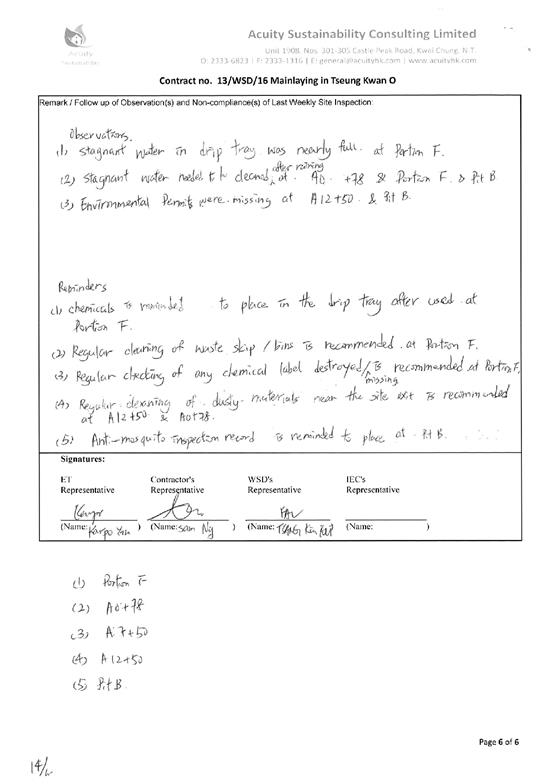 Acuity Sustainability Consulting Limited
Unit 1908, Nos. 301-305 Castle Peak Road, Kwai Chung, N.T.
Acuity
Sustainability
O: 2333-6823 | F: 2333-1316 | E: general@acuityhk.com | www.acuityhk.com
Contract no. 13/WSD/16 Mainlaying in Tseung Kwan O
Remark / Follow up of Observation(s) and Non-compliance(s) of Last Weekly Site Inspection:
Observations.
(1) stagnant water in drip tray was nearly full at Portion F.
after raining
(2) stagnant water needed to be cleaned at A0+78 & Portion F. & Pit B
(3) Environmental Permits were missing at A12+50 & Pit B.
Reminders
(1) chemicals is reminded to place in the drip tray after used at
Portion F.
(2) Regular cleaning of waste skip / bins is recommended at Portion F.
(3) Regular checking of any chemical label destroyed / is recommended at Portion F.
missing
(4) Regular cleaning of dusty materials near the site exit is recommended
at A12+50 & A0+78.
(5) Anti-mosquito inspection record is reminded to place at Pit B.
Signatures:
ET Contractor's WSD's IEC's
Representative Representative Representative Representative
(Name: Karpo ) (Name: Sam Ng ) (Name: TSANG ) (Name: )
(1) Portion F
(2) A0+78
(3) A7+50
(4) A12+50
(5) Pit B.
Page 6 of 6
14/